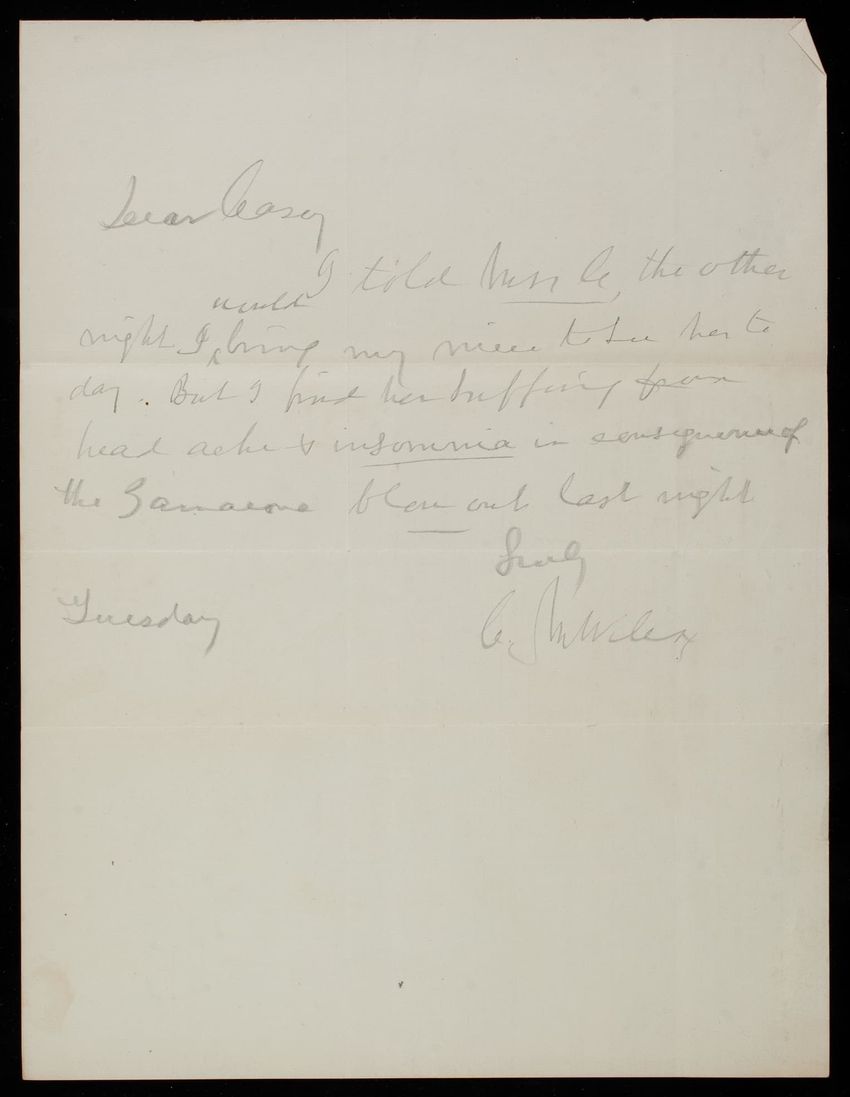 Dear Casey
I told Mrs C, the other
would
night I bring my niece to see her to
day. But I find her suffring from
head ache & insomnia in consequence of
the blow out last night
Truly
Tuesday
C. M. Wilcox